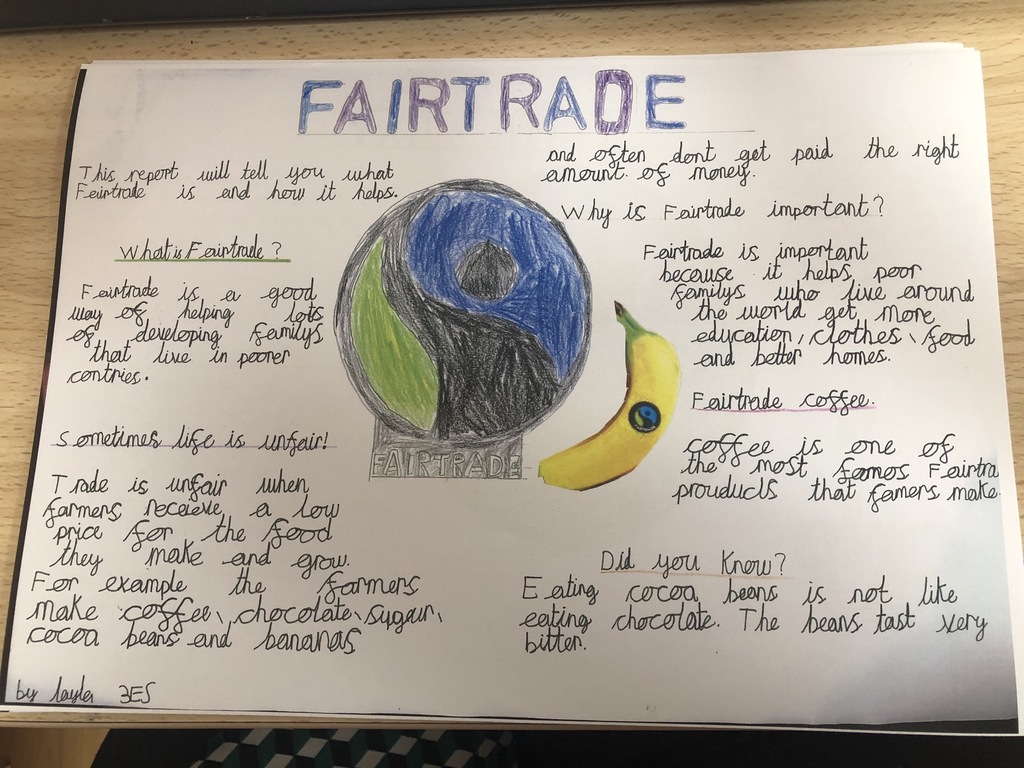 FAIRTRADE
This report will tell you what
Fairtrade is and how it helps.
What is Fairtrade?
Fairtrade is a good
way of helping lots
of developing familys
that live in poorer
contries.
Sometimes life is unfair!
Trade is unfair when
farmers receieve a low
price for the food
they make and grow.
For example the farmers
make coffee, chocolate, sugar,
cocoa beans and bananas
and often dont get paid the right
amount of money.
Why is Fairtrade important?
Fairtrade is important
because it helps poor
familys who live around
the world get more
education, clothes, food
and better homes.
Fairtrade coffee.
coffee is one of
the most famos Fairtra
prouducts that famers make.
Did you Know?
Eating cocoa beans is not like
eating chocolate. The beans tast very
bitter.
FAIRTRADE
by layla 3ES